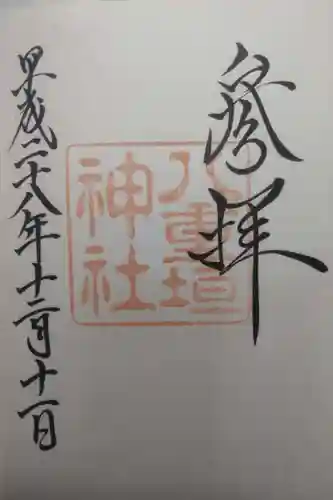 奉拝
八重垣
神社
平成二十八年十二月十一日